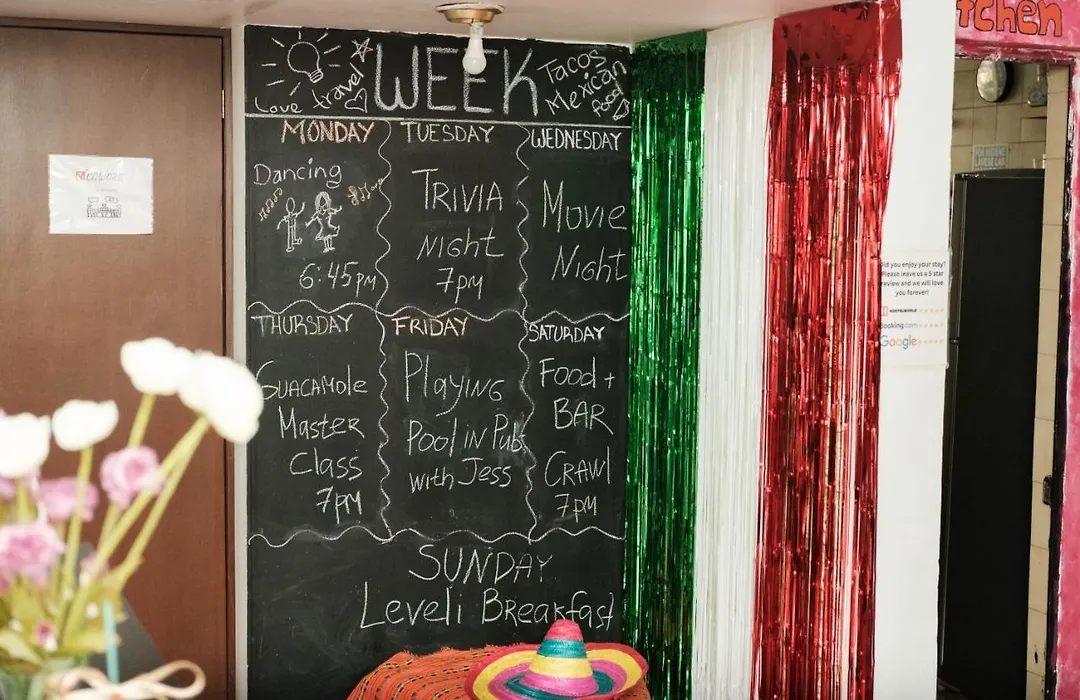 Love travel
WEEK
Tacos
Mexican
food
MONDAY
Dancing
6:45pm
TUESDAY
TRIVIA
NIGHT
7pm
WEDNESDAY
Movie
Night
THURSDAY
GUACAMOLE
MASTER
CLASS
7pm
FRIDAY
PLAYING
POOL IN Pubs
with Jess
SATURDAY
Food +
BAR
CRAWL
7pm
SUNDAY
Leveli Breakfast
tchen
POR HIGIENE
Did you enjoy your stay?
Please leave us a 5 star
review and we will love
you forever!
HOSTELWORLD
Booking.com
Google